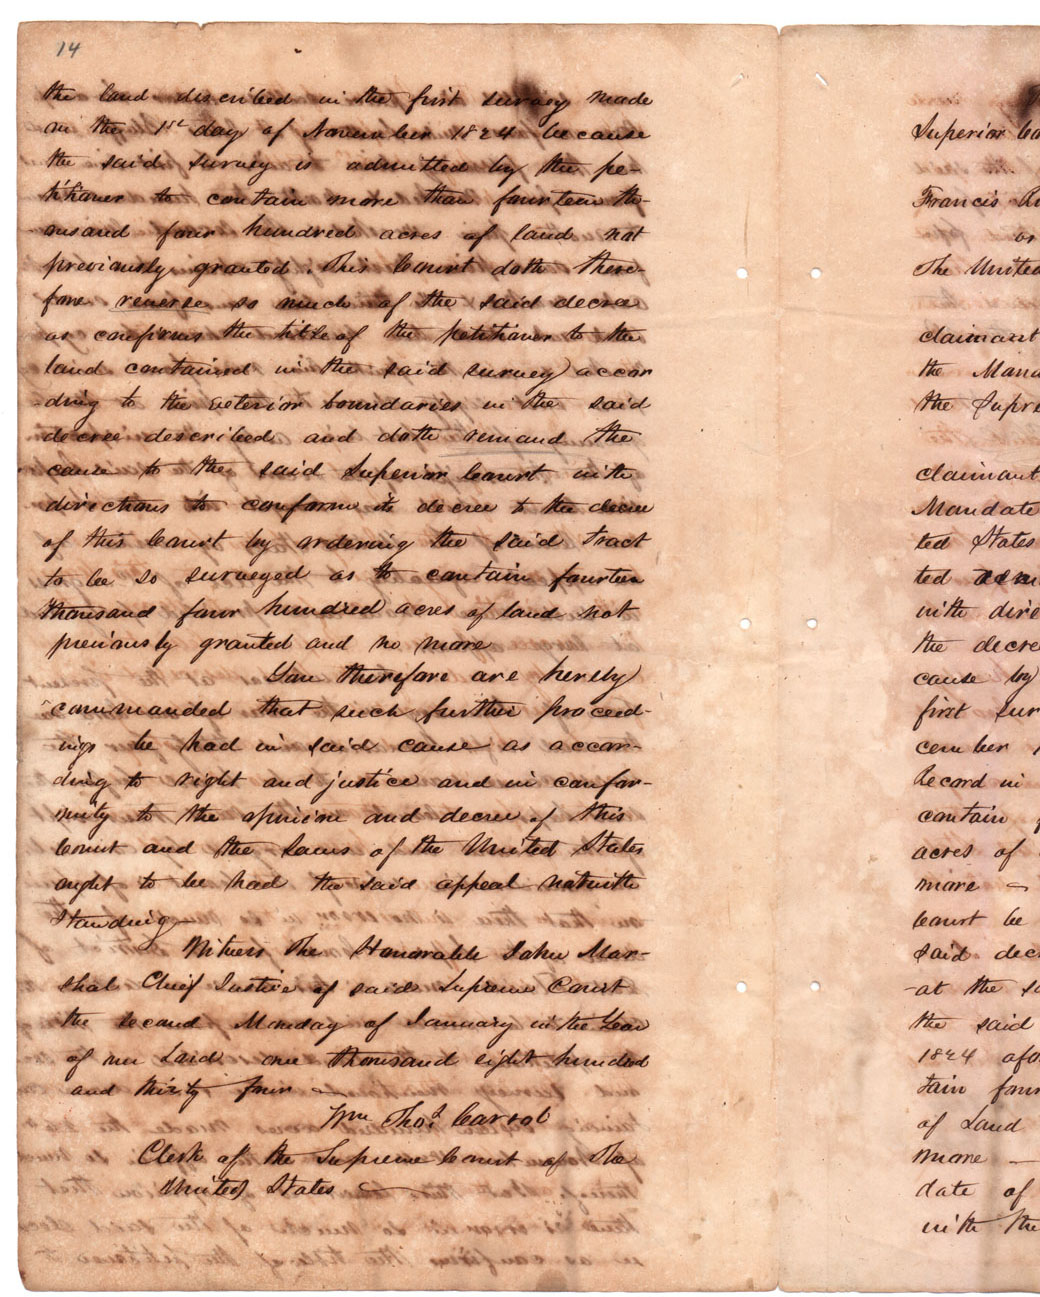 14
the land described in the first survey made
on the 1st day of November 1824 because
the said survey is admitted by the pe-
titioner to contain more than fourteen th-
ousand four hundred acres of land not
previously granted This Court doth there-
fore reverse so much of the said decree
as confirms the title of the petitioner to the
land contained in the said survey accor
-ding to the exterior boundaries in the said
decree described and doth remand the
cause to the said Superior Court with
directions to conform its decree to the decree
of this Court by ordering the said tract
to be so surveyed as to contain fourteen
thousand four hundred acres of land not
previously granted and no more
You therefore are hereby
commanded that such further proceed-
ings be had in said cause as accor-
ding to right and justice and in confor-
mity to the opinion and decree of this
Court and the Laws of the United States
ought to be had the said appeal notwith
standing
Witness The Honorable John Mar-
shal Chief Justice of said Supreme Court
the second Monday of January in the Year
of our Lord one thousand eight hundred
and thirty four
Wm Thos Carrol
Clerk of the Supreme Court of The
United States
Superior Co
Francis Ri
or
The United
claimant
the Man
the Supre
claimant
Mandate
ted States
ted
with dire
the decre
cause by
first sur
cember 1
Record in
contain f
acres of
more
Court be
said dec
-at the s
the said
1824 afo
tain four
of Land
more
date of
with the